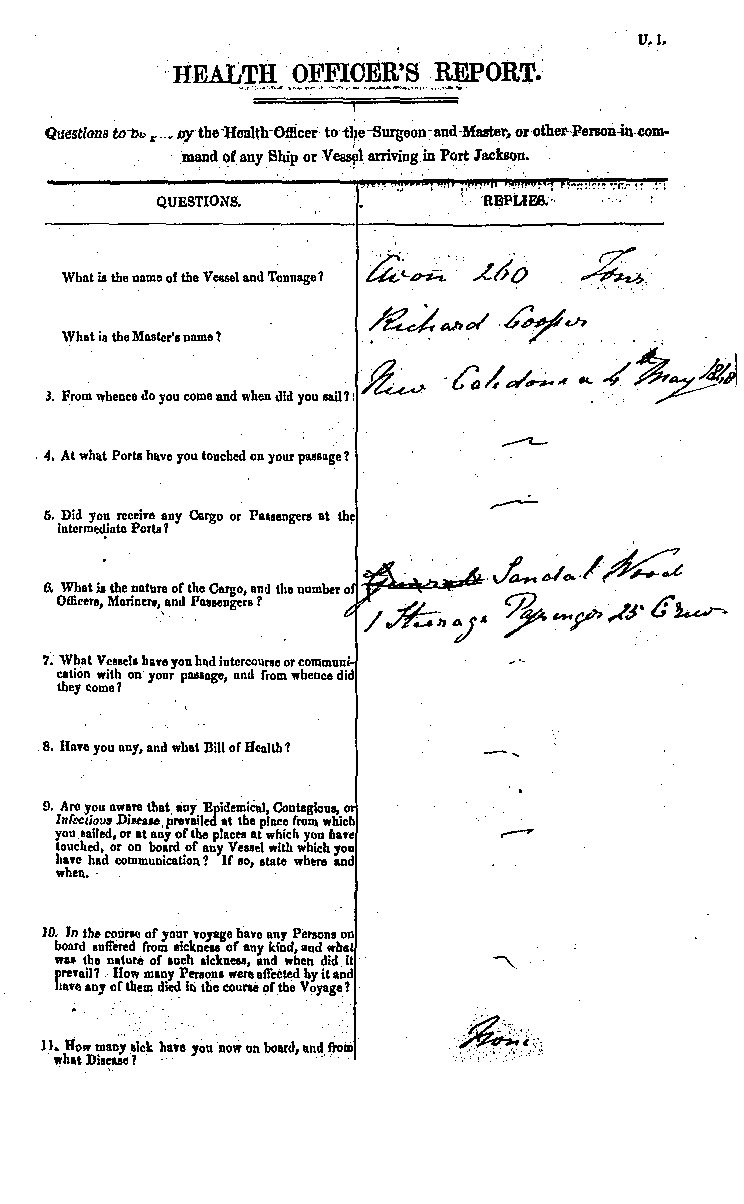 U. 1.
HEALTH OFFICER'S REPORT.
Questions to be by the Health Officer to the Surgeon and Master, or other Person in com-
mand of any Ship or Vessel arriving in Port Jackson.
QUESTIONS.
REPLIES.
What is the name of the Vessel and Tonnage?
Avon 260 Tons
What is the Master's name?
Richard Cooper
3. From whence do you come and when did you sail?
New Caledonia 4th May 1848
4. At what Ports have you touched on your passage?
—
5. Did you receive any Cargo or Passengers at the
intermediate Ports?
—
6. What is the nature of the Cargo, and the number of
Officers, Mariners, and Passengers?
Sandal Wood
1 Steerage Passenger 25 Crew
7. What Vessels have you had intercourse or communi-
cation with on your passage, and from whence did
they come?
—
8. Have you any, and what Bill of Health?
—
9. Are you aware that any Epidemical, Contagious, or
Infectious Disease prevailed at the place from which
you sailed, or at any of the places at which you have
touched, or on board of any Vessel with which you
have had communication? If so, state where and
when.
—
10. In the course of your voyage have any Persons on
board suffered from sickness of any kind, and what
was the nature of such sickness, and when did it
prevail? How many Persons were affected by it and
have any of them died in the course of the Voyage?
—
11. How many sick have you now on board, and from
what Disease?
None